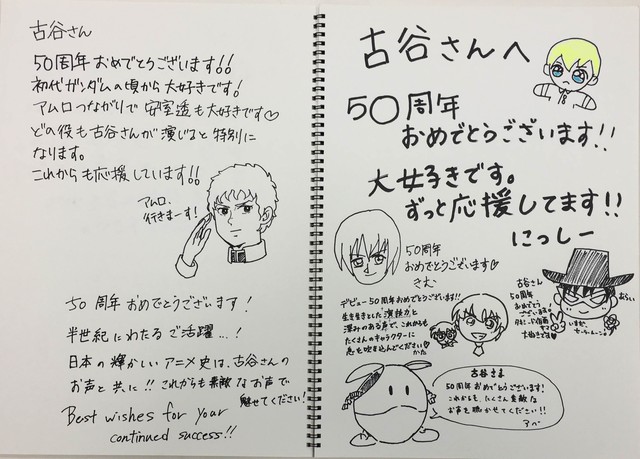 古谷さん
50周年おめでとうございます!!
初代ガンダムの頃から大好きです!
アムロつながりで安室透も大好きです♡
どの役も古谷さんが演じると特別に
なります。
これからも応援しています!!
アムロ、
行きまーす!
50周年おめでとうございます!
半世紀にわたるご活躍…!
日本の輝かしいアニメ史は、古谷さんの
お声と共に!!これからも素敵なお声で
魅せてください!
Best wishes for your
continued success!!
古谷さんへ
50周年
おめでとうございます!!
大好きです。
ずっと応援してます!!
にっしー
50周年
おめでとうございます♡
さむ
デビュー50周年おめでとうございます!!
生き生きとした"演技力"と
深みのある声で、これからも
たくさんのキャラクターに
息を吹き込んでください♡
かた
古谷さん
50周年
おめでとう
ございます
タキシード仮面
大好きです
いまだ、
セーラームーン
古谷さま
50周年おめでとうございます!
これからも、たくさん素敵な
お声を聴かせてください!!
アベ